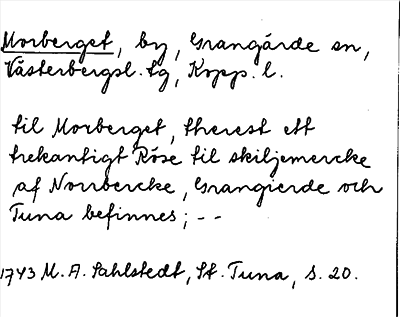 Morberget, by, Grangärde sn,
Västerbergsl. tg, Kopp. l.
til Morberget, therest ett
trekantigt Röse til skiljemercke
af Norrbercke, Grangierde och
Tuna befinnes; --
1743 M. A. Sahlstedt, St. Tuna, s. 20.